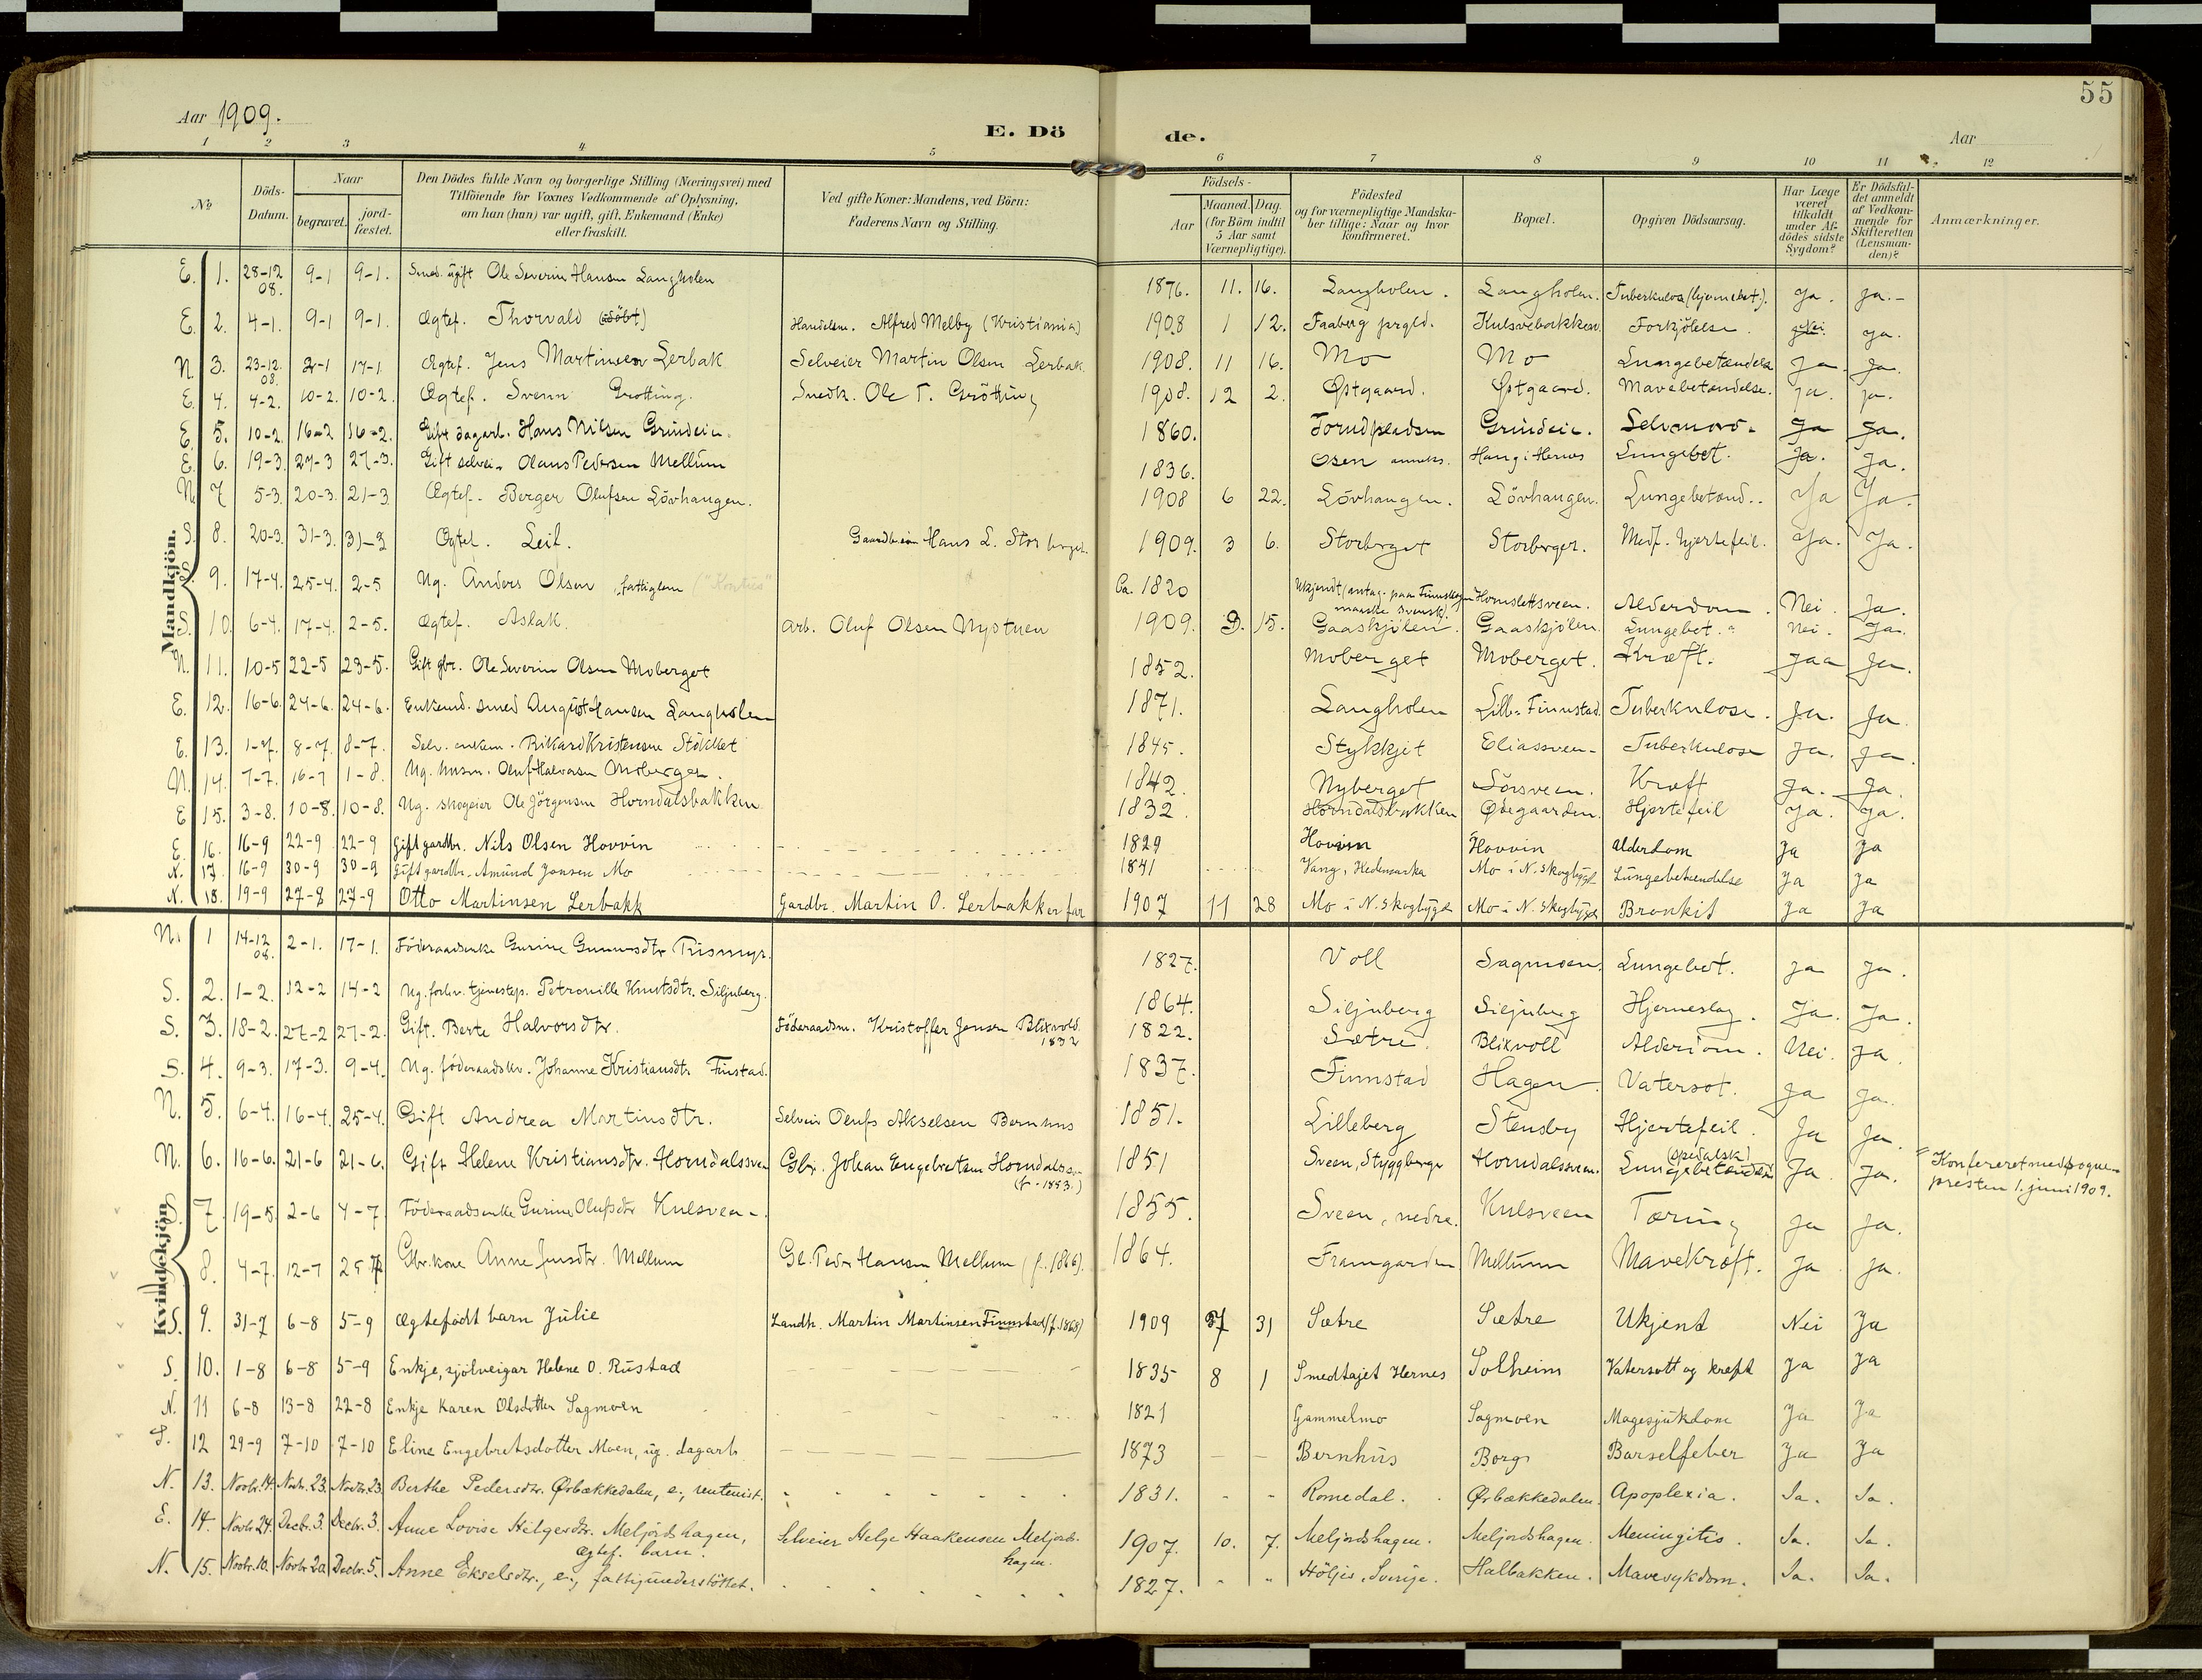 55
Aar 1909.
E. Dö de.
Aar
1 2 3 4 5 6 7 8 9 10 11 12
No
Döds-Datum.
Naar
begravet.
jord-fæstet.
Den Dödes fulde Navn og borgerlige Stilling (Næringsvei) med
Tilföiende for Voxnes Vedkommende af Oplysning,
om han (hun) var ugift, gift, Enkemand (Enke)
eller fraskilt.
Ved gifte Koner: Mandens, ved Börn:
Faderens Navn og Stilling.
Födsels-
Aar
Maaned. Dag.
(for Börn indtil
5 Aar samt
Værnepligtige).
Födested
og for værnepligtige Mandska-
ber tillige: Naar og hvor
konfirmeret.
Bopæl.
Opgiven Dödsaarsag.
Har Læge
været
tilkaldt
under Af-
dödes sidste
Sygdom?
Er Dödsfal-
det anmeldt
af Vedkom-
mende for
Skifteretten
(Lensman-
den)?
Anmærkninger.
Mandkjön.
E. 1. 28-12 08. 9-1 9-1. Smed. ugift Ole Severin Hansen Langholen 1876. 11. 16. Langholen. Langholen. Tuberkulos (hjernebet.). ja. ja.-
E. 2. 4-1. 9-1 9-1. Ægtef. Thorvald Handelsm. Alfred Melby (Kristiania) 1908 1 12. Faaberg prgld. Kulsvebakken Forkjölelse. nei. ja.
N. 3. 23-12. 08. 2-1 17-1. Ægtef. Jens Martinsen Lerbak Selveier Martin Olsen Lerbak 1908. 11 16. Mo Mo Lungebetændels Ja. Ja.
E. 4. 4-2. 10-2. 10-2. Ægtef. Svenn Grötting. Snedk. Ole T. Grötting 1908. 12 2. Østgaard. Østgaard. Mavebetændelse. ja. ja.
E. 5. 10-2. 16-2 16-2. Gift dagarb. Hans Nilsen Grindein. 1860. Torndpladsen Grindein. Selvmord. Ja Ja.
E. 6. 19-3. 27-3 27-3. Gift selvei. Olaus Pedersen Mellum 1836. Osen anneks. Haug i Hernes Lungebet. Ja. Ja.
N. 7 5-3. 20-3. 21-3 Ægtef. Berger Olufsen Lövhaugen. 1908 6 22. Lövhaugen. Lövhaugen. Lungebetænd.. Ja Ja
S. 8. 20-3. 31-3. 31-3 Ægtef. Leif. Gaardbr. Hans L. Storberget. 1909. 3 6. Storberget Storberget. Medf. hjertefeil. Ja. Ja.
S. 9. 17-4. 25-4. 2-5 Ug. Anders Olsen, fattiglem Ca. 1820 Ukjendt (antag. paa Finnskogen maaske svensk). Hornslettsveen. Alderdom. Nei. Ja.
S. 10. 6-4. 17-4. 2-5. Ægtef. Aslak. Arb. Oluf Olsen Nystuen 1909. 3. 15. Gaaskjölen. Gaaskjölen. Lungebet. nei. Ja.
N. 11. 10-5 22-5 23-5. Gift gbr. Ole Severin Olsen Moberget 1852. Moberget Moberget. Kræft. Jaa Ja.
E. 12. 16-6. 24-6. 24-6. Enkemd. smed August Hansen Langholen 1871. Langholen Lill-Finnstad. Tuberkulose. Ja. Ja.
E. 13. 1-7. 8-7. 8-7. Selv. enkem. Rikard Kristensen Stökket 1845. Stykkjet Eliassveen. Tuberkulose Ja. Ja.
N. 14. 7-7. 16-7 1-8. Ug. husm. Oluf Halvorsen Moberget. 1842. Nyberget Sörsveen. Kræft Ja. Ja.
E 15. 3-8. 10-8. 10-8. Ug. skogeier Ole Jörgensen Horndalsbakken 1832. Horndalsbakken Ødegaarden. Hjertefeil Ja. Ja.
E. 16. 16-9 22-9 22-9 Gift gardbr. Nils Olsen Hovvin 1829 Hovvin Hovvin Alderdom Ja Ja
N. 17. 16-9 30-9 30-9 Gift gardbr. Amund Jonsen Mo 1841 Vang, Hedemarka Mo i N. Skogbygd Lungebetændelse Ja Ja
N. 18. 19-9 27-9 27-9 Otto Martinsen Lerbakk Gardbr. Martin O. Lerbakken far 1907 11 28 Mo i N. Skogbygd Mo i N. Skogbygd Bronkit Ja Ja
Kvindekjön.
N. 1 14-12 08. 2-1. 17-1. Föderaadsenke Gurine Gunnusdtr Trismyr. 1827. Voll Sagmoen. Lungebet. Ja Ja.
S. 2. 1-2. 12-2 14-2 Ug. forhv. tjenestep. Petronille Knutsdtr. Siljuberg. 1864. Siljuberg Siljuberg Hjerneslag. Ja. Ja.
S. 3. 18-2. 27-2 27-2. Gift. Berte Halvorsdtr. Föderaadsm. Kristoffer Jensen Blixvold. 1832 1822. Sætre. Blixvoll Alderdom. Nei. Ja.
S. 4. 9-3. 17-3. 9-4. Ug. föderaadskv. Johanne Kristiansdtr. Finstad. 1837. Finnstad Hagen. Vatersot. Ja Ja.
N. 5. 6-4. 16-4. 25-4. Gift Andrea Martinsdtr. Selveier Olaufs Akselsen Bernhus 1851. Lilleberg Stensby Hjertefeil. Ja Ja.
N. 6. 16-6. 21-6 21-6. Gift Helene Kristiansdtr. Horndalssveen Gbr. Johan Engebretsen Horndalssv. (f. 1853.) 1851 Sveen, Styggberget Horndalssveen. Lungebetændels (spedalsk) Ja. Ja. Konfereret med sogne-
presten 1. juni 1909.
S. 7. 19-5. 2-6 4-7 Föderaadsenke Gurine Olufsdtr Kulsveen. 1855. Sveen, nedre. Kulsveen Tæring Ja Ja.
8. 4-7. 12-7 25-7 Gbr.kone Anne Jensdtr. Mellum Gb. Peder Hansen Mellum (f. 1866). 1864. Framgarden Mellum Mavekræft. Ja Ja.
S. 9. 31-7 6-8 5-9 Ægtefödt barn Julie Landh. Martin Martinsen Finnstad (f. 1868) 1909 7 31 Sætre Sætre Ukjent Nei Ja
S. 10. 1-8 6-8 5-9 Enkje, sjölveigar Helene O. Rustad 1835 8 1 Smedtajet Hernes Solheim Vatersott og kreft Ja Ja
N. 11 6-8 13-8 22-8 Enkje Karen Olsdotter Sagmoen 1821 Gammelmo Sagmoen Magesjukdom Ja Ja
S. 12 29-9 7-10 7-10 Eline Engebretsdotter Moen, ug. dagarb. 1873 Bernhus Borg Barselfeber Ja Ja
N. 13. Novbr. 14. Novbr. 23. Novbr. 23 Berthe Pedersdtr. Ørbækkedalen, e., rentenist. 1831. Romedal. Ørbækkedalen. Apoplexia. Ja. Ja.
E. 14. Novbr. 24. Decbr. 3. Decbr. 3. Anne Lovise Helgesdtr. Meljordshagen, Ægtef. barn. Selveier Helge Haakensen Meljordshagen. 1907. 10. 7. Meljordshagen. Meljordshagen. Meningitis. Ja. Ja.
N. 15. Novbr. 10. Novbr. 20. Decbr. 5. Anne Ekselsdtr., e., fattigunderstöttet. 1827. Höljes, Sverige. Halbakken. Mavesykdom. Ja. Ja.